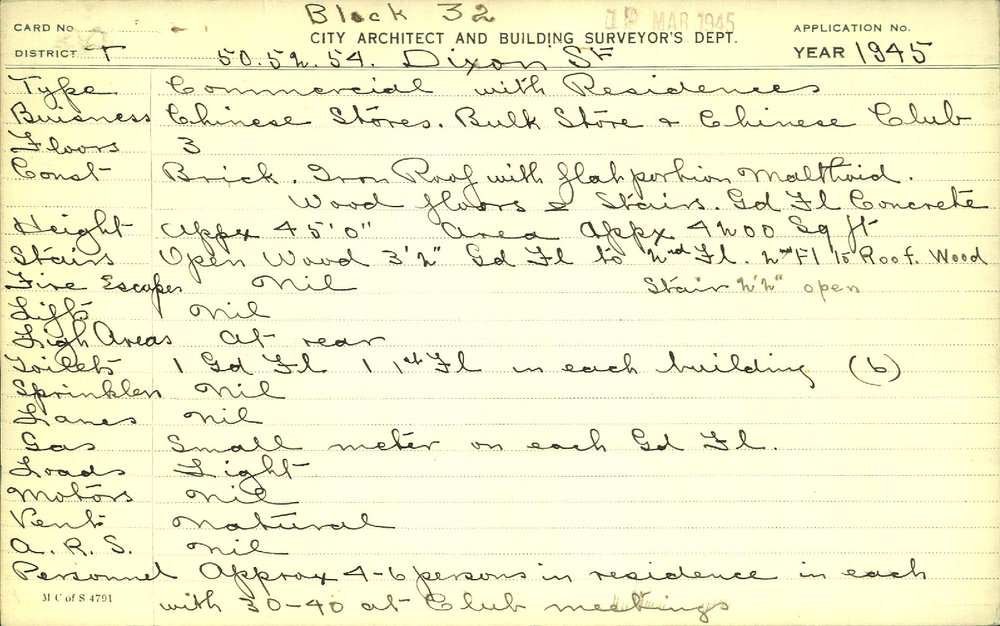 Block 32
12 MAR 1945
CARD No.
CITY ARCHITECT AND BUILDING SURVEYOR'S DEPT.
APPLICATION No.
DISTRICT T 50.52.54. Dixon St YEAR 1945
Type Commercial with Residences
Buisness Chinese Stores. Bulk Store & Chinese Club
Floors 3
Const Brick. Iron Roof with flat portion Malthoid.
Wood floors & Stairs. Gd Fl Concrete
Height Appx 45'0" Area Appx 4200 Sq ft
Stairs Open Wood 3'2" Gd Fl to 2nd Fl. 2nd Fl to Roof. Wood
Fire Escapes Nil Stair 2'2" open
Lifts Nil
Ligh Areas At rear
Toilets 1 Gd Fl 1 1st Fl in each building (6)
Sprinklers Nil
Lanes Nil
Gas Small meter on each Gd Fl.
Loads Light
Motors Nil
Vent Natural
A.R.S. Nil
Personnel Approx 4-6 persons in residence in each
M C of S 4791 with 30-40 at Club meetings